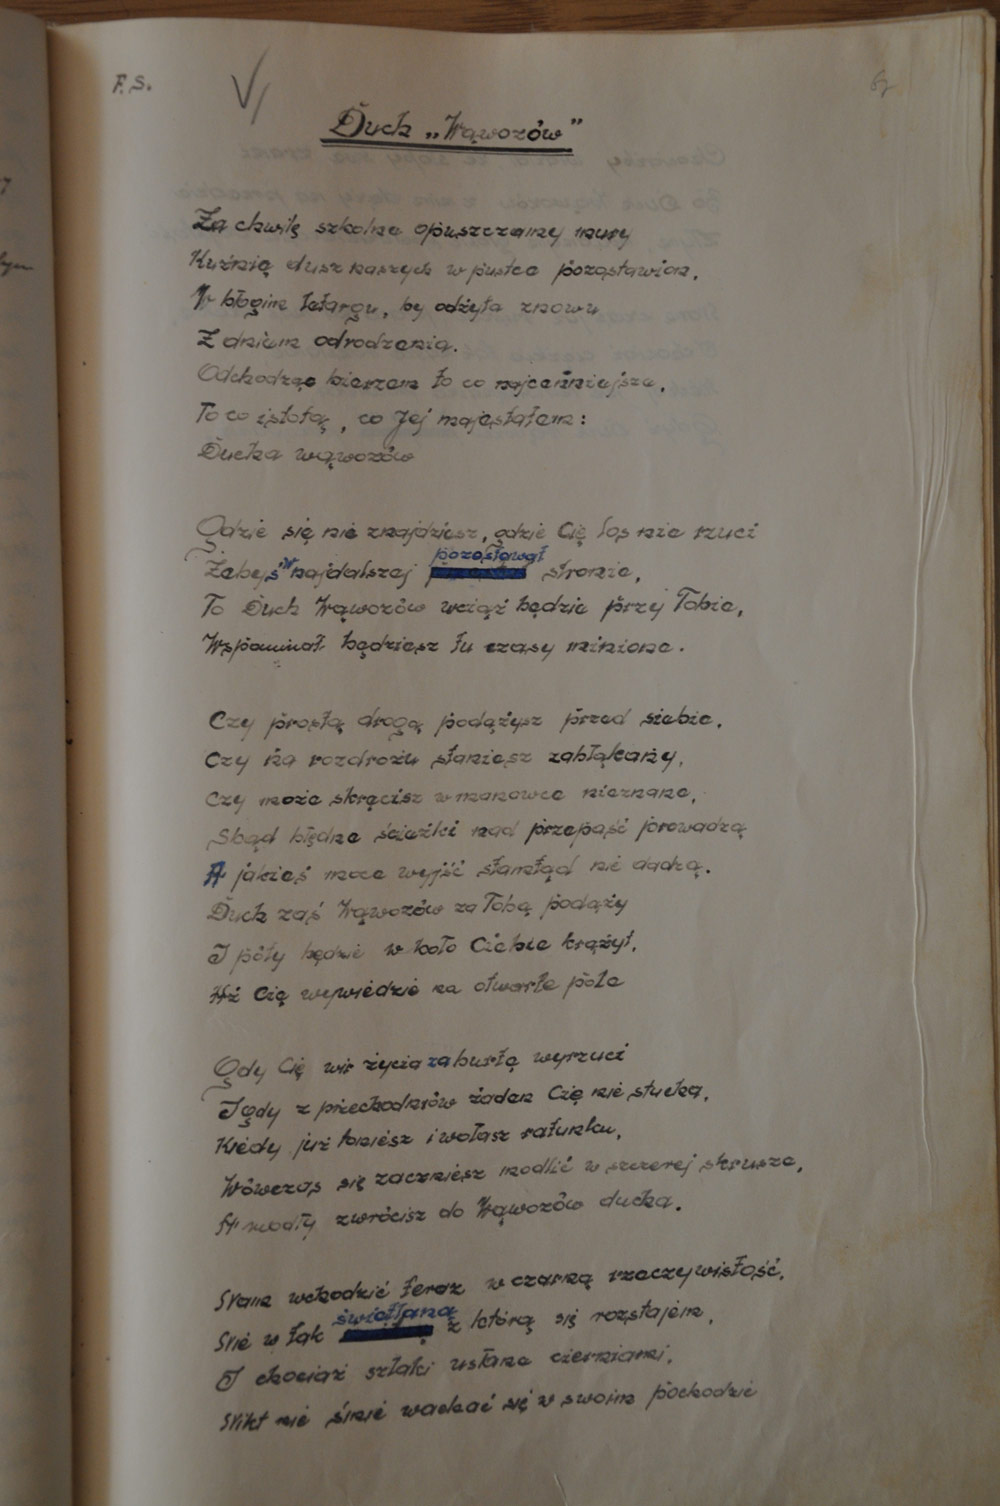 F.S.
Duch „Wąwozów”
Za chwilę szkolne opuszczamy mury
Kuźnię dusz naszych w pustce pozostawion,
W błogim letargu, by odżyła znowu
Z dniem odrodzenia.
Odchodząc bierzem to co najcenniejsze,
To co istotą, co Jej majestatem:
Ducha wąwozów
Gdzie się nie znajdziesz, gdzie Cię los nie rzuci
Żebyś w najdalszej pozostawał stronie,
To Duch Wąwozów wciąż będzie przy Tobie,
Wspominał będziesz tu czasy minione.
Czy prostą drogą podążysz przed siebie,
Czy na rozdrożu staniesz zabłąkany,
Czy może skręcisz w manowce nieznane,
Skąd błędne ścieżki nad przepaść prowadzą
A jakieś moce wyjść stamtąd nie dadzą.
Duch zaś Wąwozów za Tobą podąży
I póty będzie w koło Ciebie krążył,
Aż Cię wywiedzie na otwarte pole
Gdy Cię wir życia za burtę wyrzuci
I gdy z przechodniów żaden Cię nie słucha,
Kiedy już toniesz i wołasz ratunku,
Wówczas się zaczniesz modlić w szczerej skrusze,
A modły zwrócisz do Wąwozów ducha.
Nam wchodzić teraz w czarną rzeczywistość,
Nie w tak świetlaną z którą się rozstajem,
I chociaż szlaki usłane cierniami,
Nikt nie śmie wachać się w swoim pochodzie